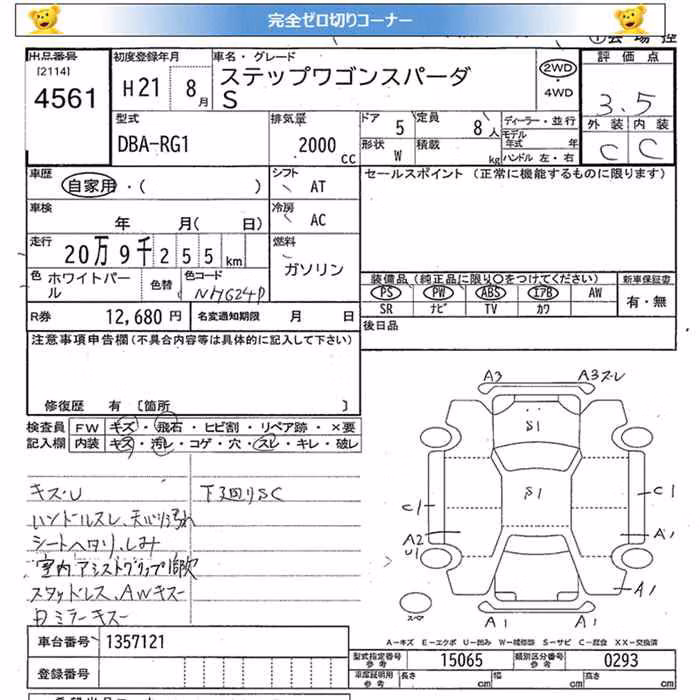 完全ゼロ切りコーナー
出品番号
[2114]
4561
初度登録年月
H21
8月
車名・グレード
ステップワゴンスパーダ
S
2WD
4WD
評価点
3.5
外装 内装
C C
型式
DBA-RG1
排気量
2000
cc
ドア
5
定員
8人
形状
W
積載
kg
ディーラー・並行
モデル
年式 年
ハンドル 左・右
車歴
自家用・( )
シフト
AT
セールスポイント (正常に機能するものに限ります)
車検
年 月( 日)
冷房
AC
走行
20万9千255km
燃料
ガソリン
色
ホワイトパール
色替
色コード
NHG24P
装備品 (純正品に限り○をつけてください)
新車保証書
PS PW ABS エアB AW
SR ナビ TV カワ
有・無
R券
12,680 円
名変通知期限 月 日
後日品
注意事項申告欄(不具合内容等は具体的に記入して下さい)
修復歴 有 [箇所 ]
検査員
記入欄
FW キズ・飛石・ヒビ割・リペア跡・×要
内装 キズ・汚レ・コゲ・穴・スレ・キレ・破レ
キズ・U
下回りSC
ハンドルスレ、天バリ汚れ
シートヘタリ、しみ
室内アシストグリップ
スタッドレス、AWキズ
ミラーキズ
A3
A3スレ
S1
S1
C1
C1
A2
U1
A1
A1
A1
A1
スペア
A-キズ E-エクボ U-凹み W-補修跡 S-サビ C-腐食 XX-交換済
車台番号
1357121
登録番号
型式指定番号
参考
15065
類別区分番号
参考
0293
車庫証明用
参考
長さ cm 幅 cm 高さ cm